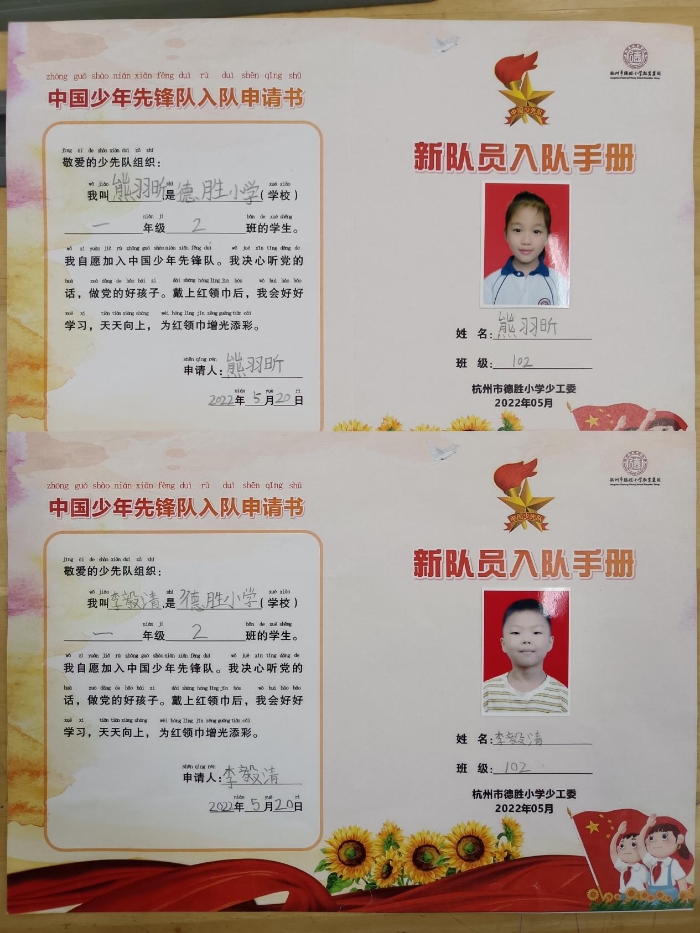 zhōng guó shào nián xiān fēng duì rù duì shēn qǐng shū
中国少年先锋队入队申请书
jìng ài de shào xiān duì zǔ zhī
敬爱的少先队组织：
wǒ jiào shì xué xiào
我叫熊羽昕是德胜小学（学校）
nián jí bān de xué shēng
一年级2班的学生。
wǒ zì yuàn jiā rù zhōng guó shào nián xiān fēng duì wǒ jué xīn tīng dǎng de
我自愿加入中国少年先锋队。我决心听党的
huà zuò dǎng de hǎo hái zi dài shàng hóng lǐng jīn hòu wǒ huì hǎo hǎo
话，做党的好孩子。戴上红领巾后，我会好好
xué xí tiān tiān xiàng shàng wèi hóng lǐng jīn zēng guāng tiān cǎi
学习，天天向上，为红领巾增光添彩。
shēn qǐng rén
申请人：熊羽昕
nián yuè rì
2022年5月20日
杭州市德胜小学教育集团
德
中国少先队
新队员入队手册
姓 名：熊羽昕
班 级：102
杭州市德胜小学少工委
2022年05月
zhōng guó shào nián xiān fēng duì rù duì shēn qǐng shū
中国少年先锋队入队申请书
jìng ài de shào xiān duì zǔ zhī
敬爱的少先队组织：
wǒ jiào shì xué xiào
我叫李毅清是德胜小学（学校）
nián jí bān de xué shēng
一年级2班的学生。
wǒ zì yuàn jiā rù zhōng guó shào nián xiān fēng duì wǒ jué xīn tīng dǎng de
我自愿加入中国少年先锋队。我决心听党的
huà zuò dǎng de hǎo hái zi dài shàng hóng lǐng jīn hòu wǒ huì hǎo hǎo
话，做党的好孩子。戴上红领巾后，我会好好
xué xí tiān tiān xiàng shàng wèi hóng lǐng jīn zēng guāng tiān cǎi
学习，天天向上，为红领巾增光添彩。
shēn qǐng rén
申请人：李毅清
nián yuè rì
2022年5月20日
杭州市德胜小学教育集团
德
中国少先队
新队员入队手册
姓 名：李毅清
班 级：102
杭州市德胜小学少工委
2022年05月